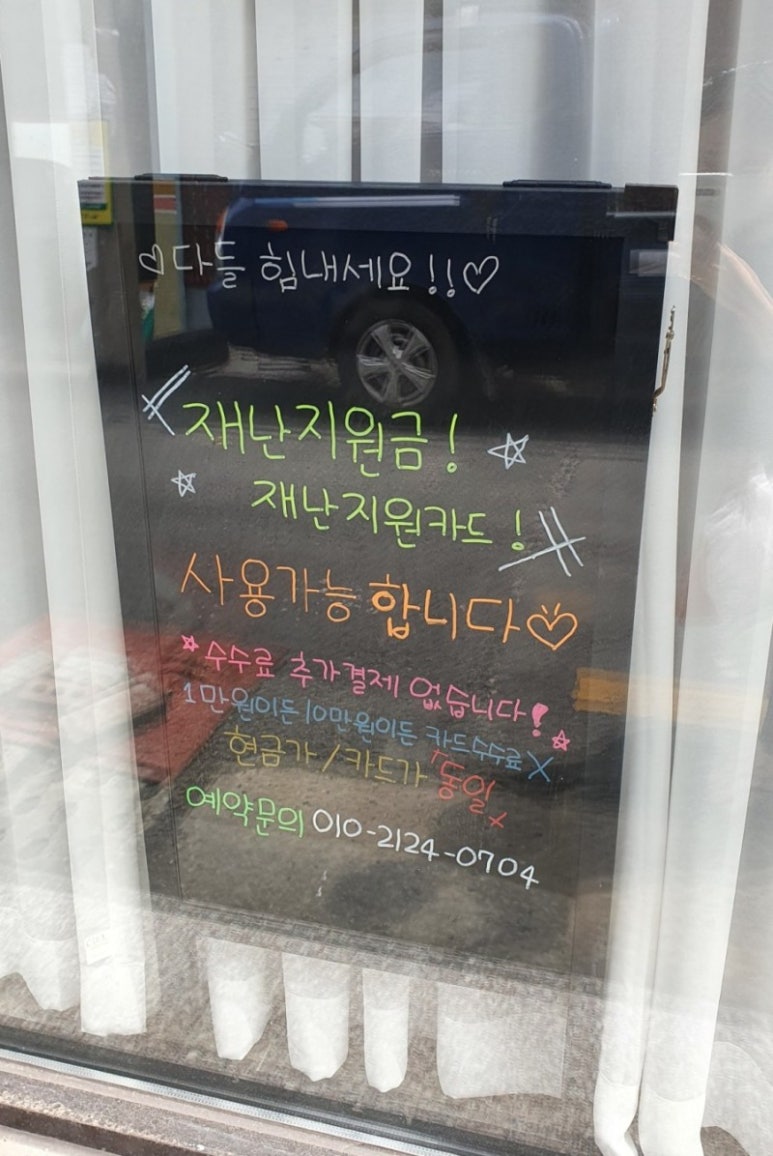 ♡다들 힘내세요!!♡
재난지원금! ☆
☆ 재난지원카드!
사용가능합니다♡
☆수수료 추가결제 없습니다!☆
1만원이든 10만원이든 카드수수료 X
현금가/카드가 "동일"
예약문의 010-2124-0704